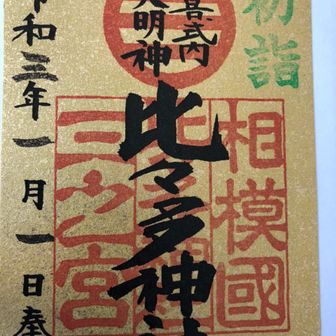 初詣
喜式内
大明神
比々多神社
相模國
三之宮
令和三年一月一日奉